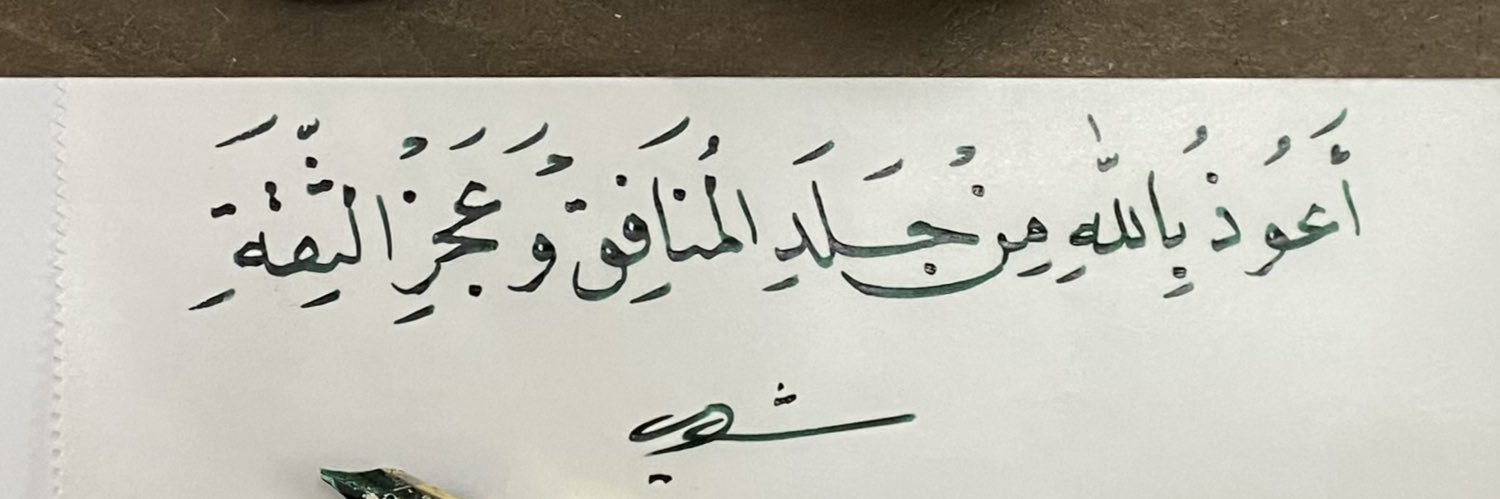 أَعُوذُ بِاللّٰهِ مِنْ جَلَدِ الْمُنَافِقِ وَعَجْزِ الثِّقَةِ